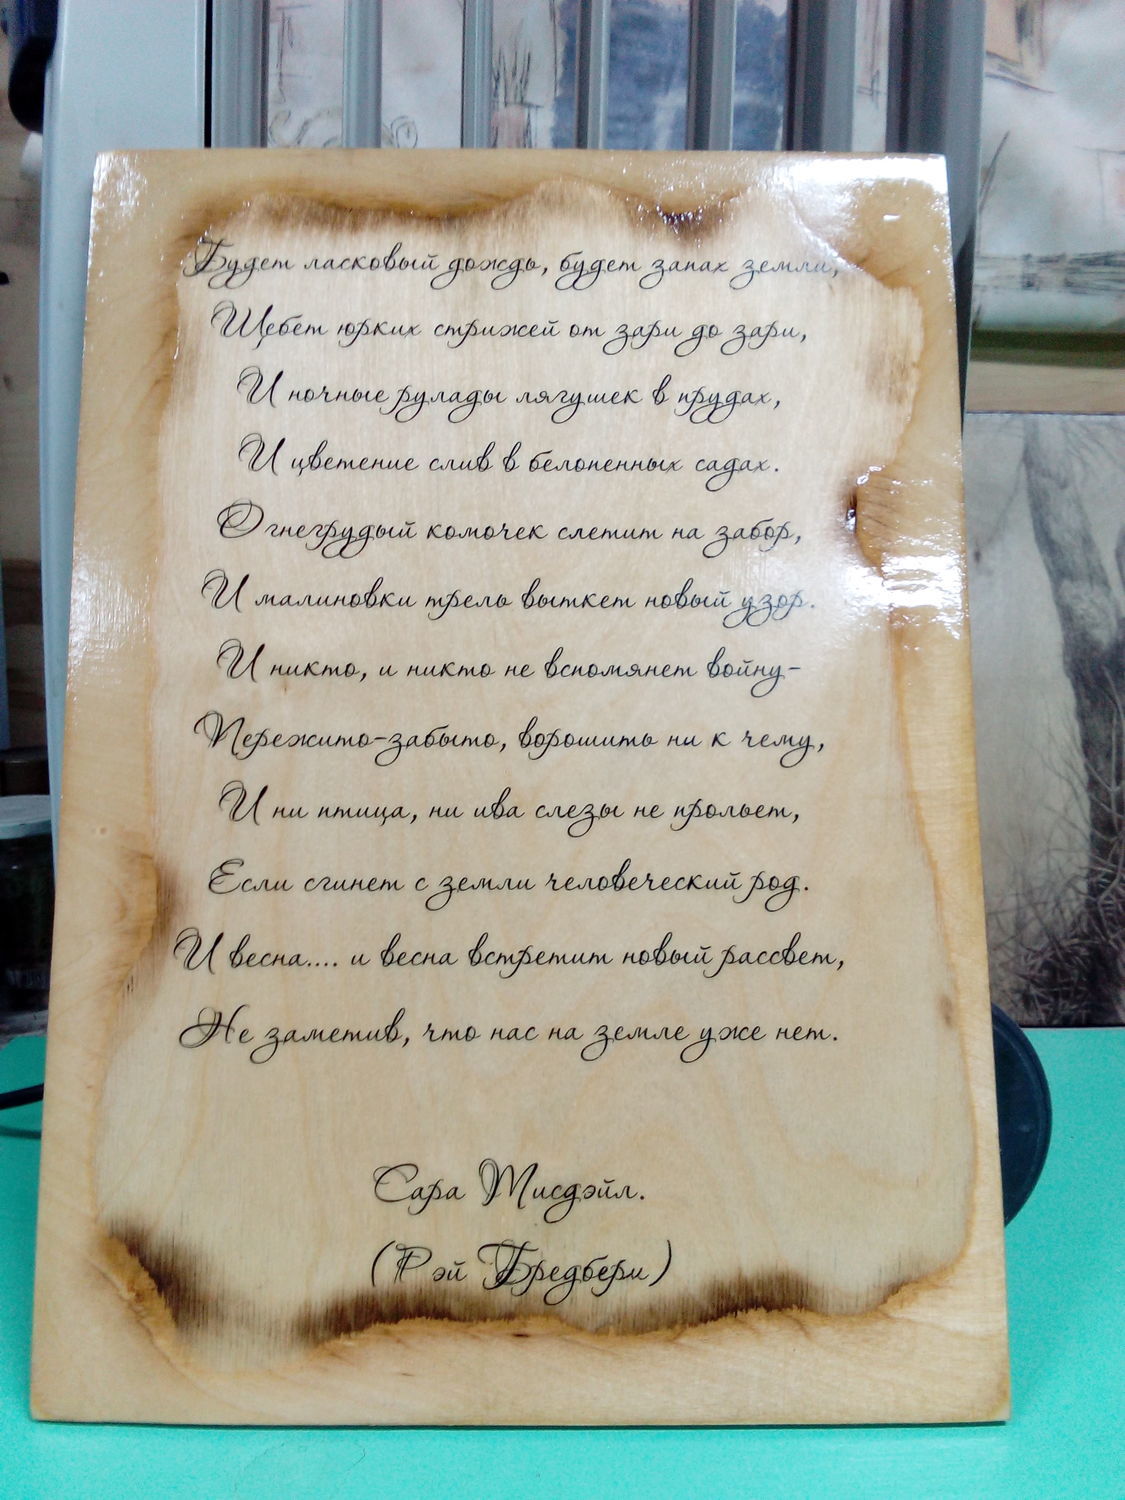 Будет ласковый дождь, будет запах земли,
Щебет юрких стрижей от зари до зари,
И ночные рулады лягушек в прудах,
И цветение слив в белопенных садах.
Огнегрудый комочек слетит на забор,
И малиновки трель выткет новый узор.
И никто, и никто не вспомянет войну-
Пережито-забыто, ворошить ни к чему,
И ни птица, ни ива слезы не прольет,
Если сгинет с земли человеческий род.
И весна.... и весна встретит новый рассвет,
Не заметив, что нас на земле уже нет.
Сара Тисдэйл.
(Рэй Бредбери)